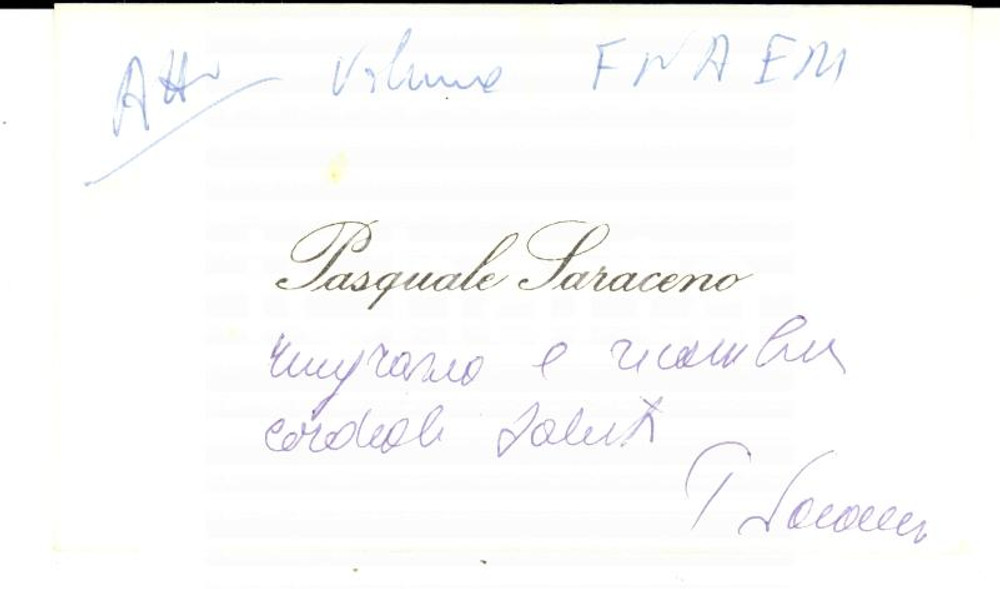 Atti Volume FNAEM
Pasquale Saraceno
ringrazia e ricambia
cordiali saluti
P Saraceno